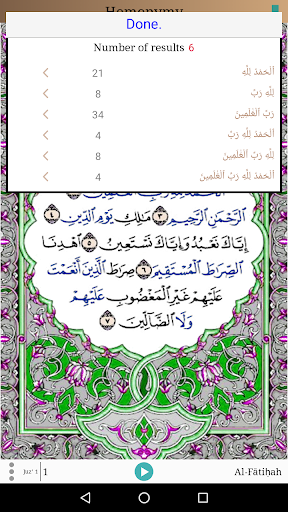 Homonymy
Done.
Number of results 6
21 ٱلۡحَمۡدُ لِلَّهِ
8 لِلَّهِ رَبِّ
34 رَبِّ ٱلۡعَٰلَمِينَ
4 ٱلۡحَمۡدُ لِلَّهِ رَبِّ
8 لِلَّهِ رَبِّ ٱلۡعَٰلَمِينَ
4 ٱلۡحَمۡدُ لِلَّهِ رَبِّ ٱلۡعَٰلَمِينَ
ٱلرَّحْمَٰنِ ٱلرَّحِيمِ ٣ مَٰلِكِ يَوْمِ ٱلدِّينِ ٤
إِيَّاكَ نَعْبُدُ وَإِيَّاكَ نَسْتَعِينُ ٥ ٱهْدِنَا
ٱلصِّرَٰطَ ٱلْمُسْتَقِيمَ ٦ صِرَٰطَ ٱلَّذِينَ أَنْعَمْتَ
عَلَيْهِمْ غَيْرِ ٱلْمَغْضُوبِ عَلَيْهِمْ
وَلَا ٱلضَّآلِّينَ ٧
Juz' 1 1 Al-Fātiḥah